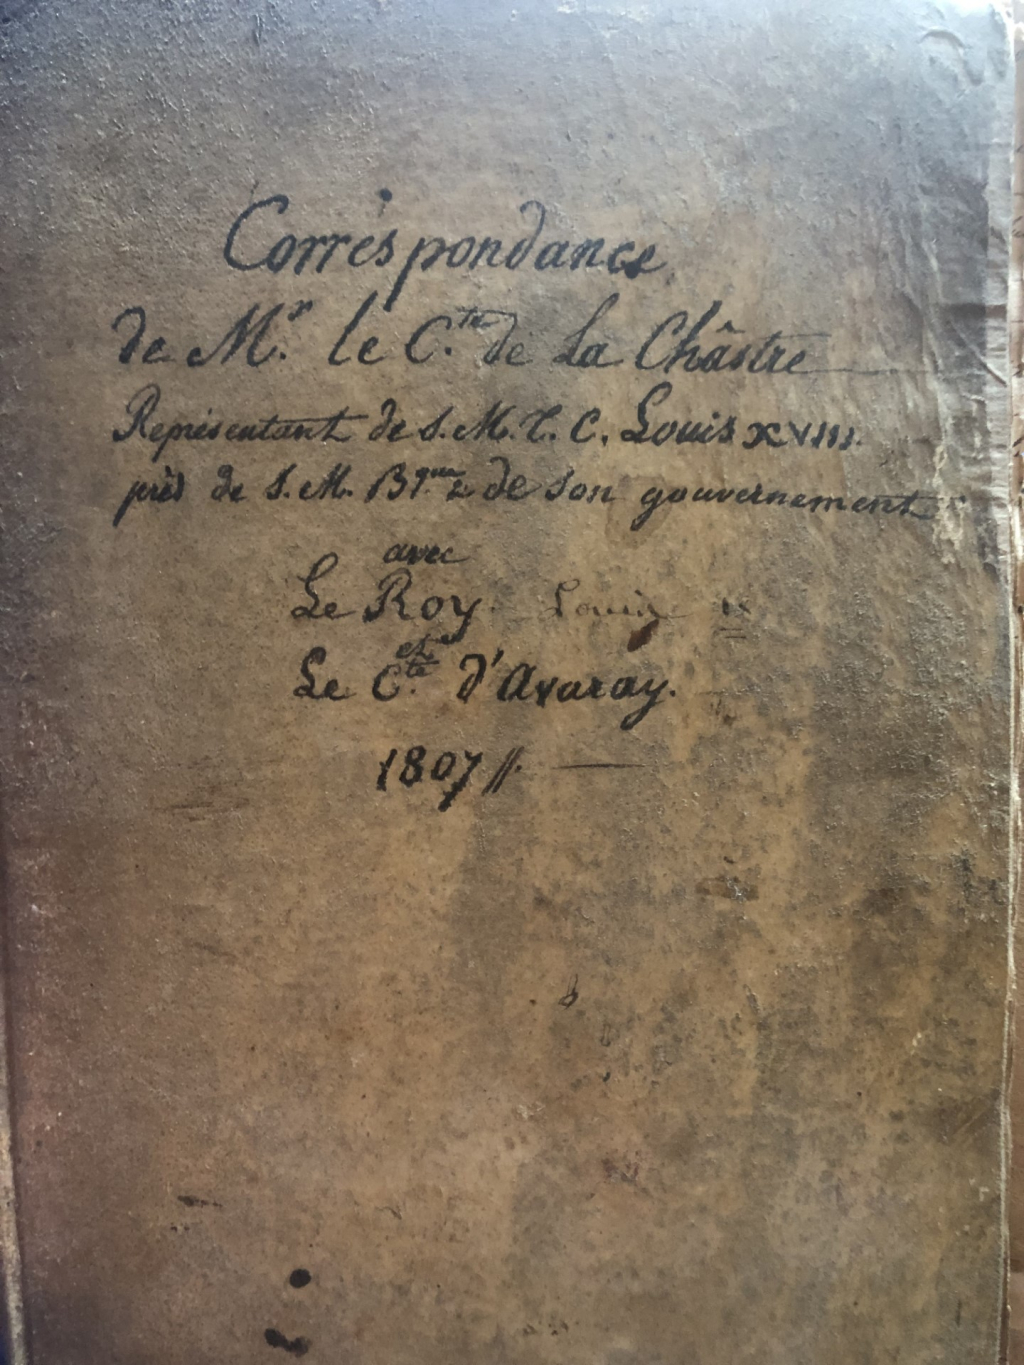 Corréspondance
de Mr. le C.te de La Châstre
Représentant de S. M. T. C. Louis XVIII.
près de S. M. Bque. & de son gouvernement
avec
Le Roy. Louis
et
Le C.te d'Avaray.
1807 //. —